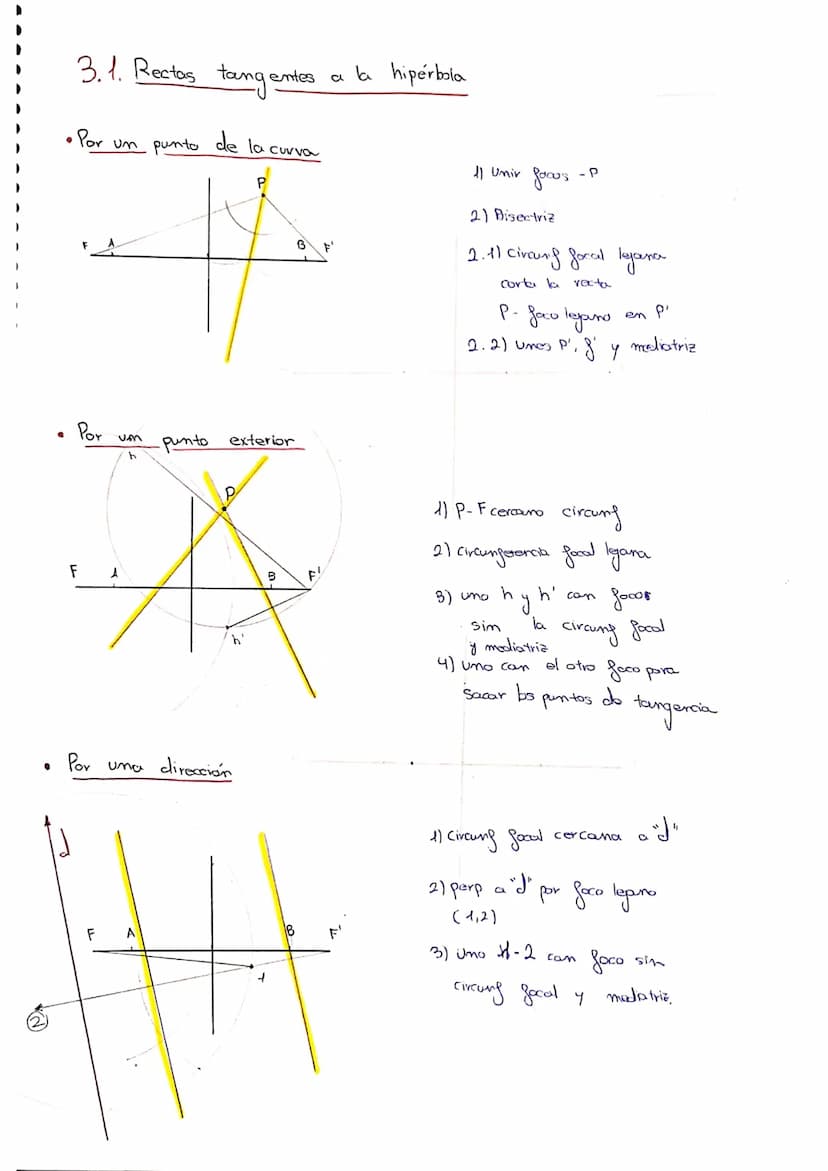 3.1. Rectas tangentes a la hipérbola
• Por un punto de la curva
P
F A B F'
1) Unir focos - P
2) Bisectriz
2.1) Circunf focal lejana
corta la recta
P - foco lejano en P'
2.2) Unes P', f' y mediatriz
• Por un punto exterior
h
P
F A B F'
h'
1) P - F cercano circunf
2) Circunferencia focal lejana
3) uno h y h' con focos
sin la circunf focal
y mediatriz
4) Uno con el otro foco para
sacar los puntos de tangencia
• Por una dirección
d
F A B F'
1
2
1) Circunf focal cercana a "d"
2) perp a "d" por foco lejano
(1,2)
3) Uno 1-2 con foco sin
circunf focal y mediatriz.